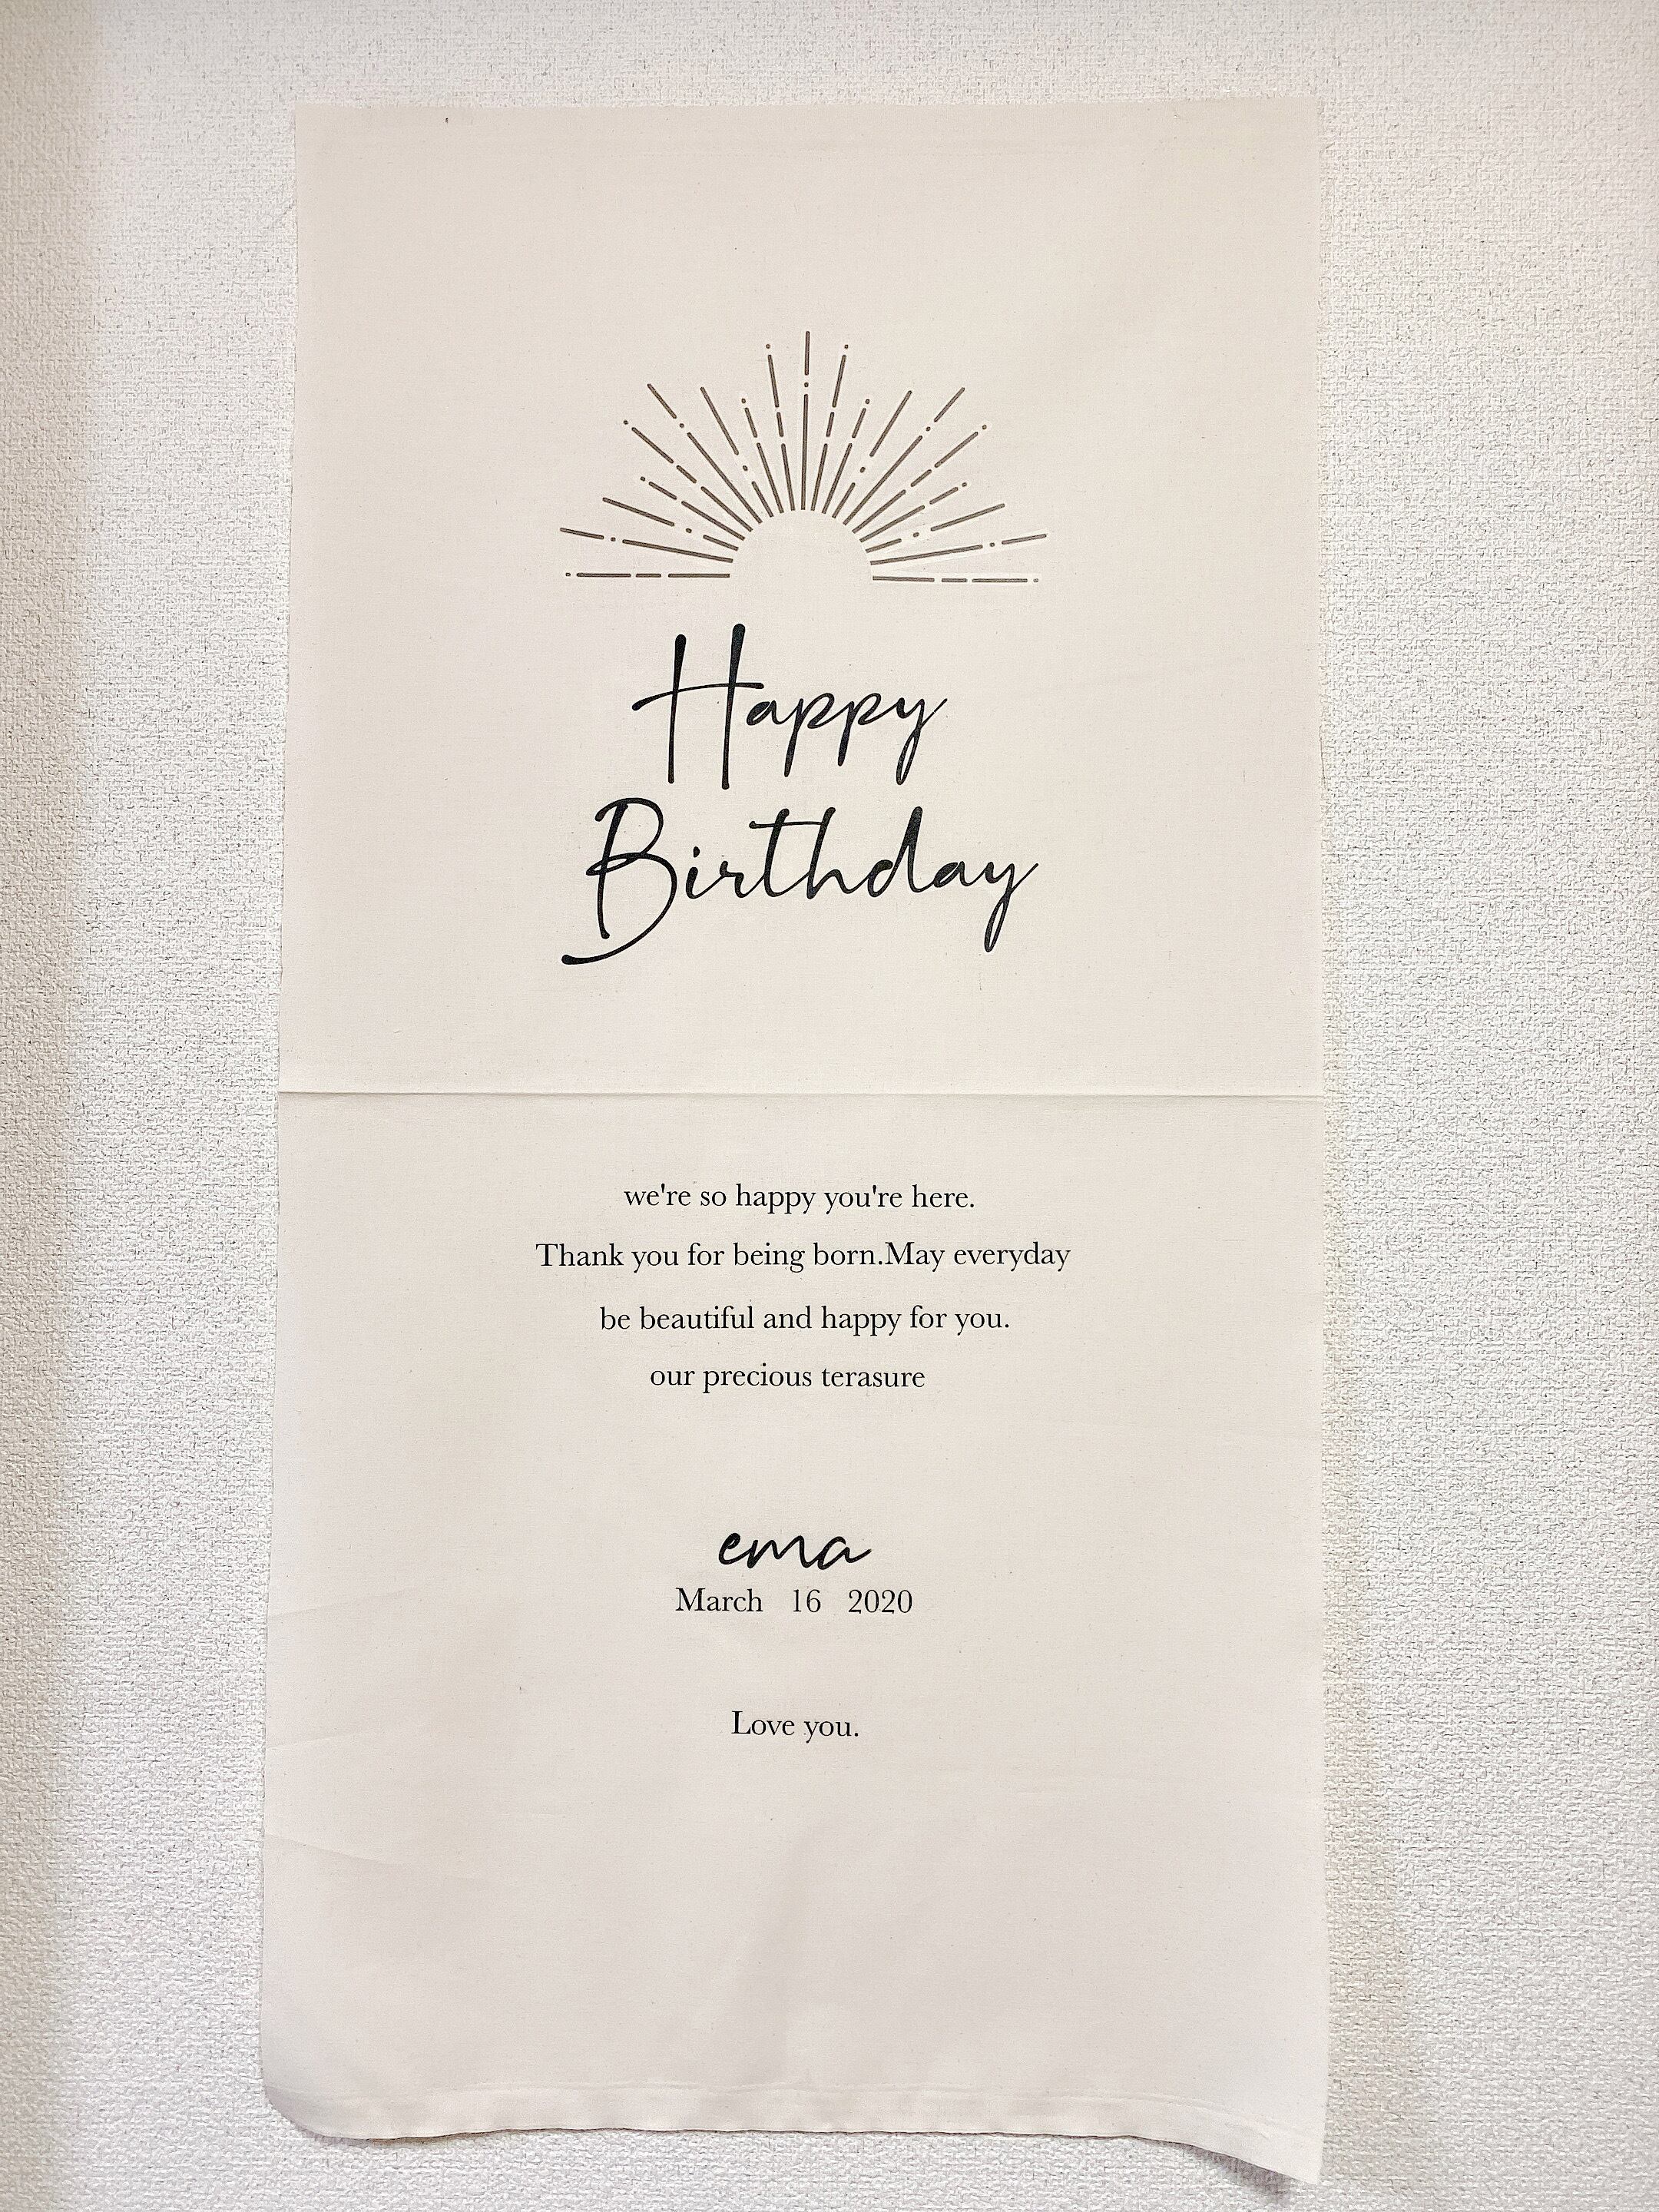 Happy
Birthday
we're so happy you're here.
Thank you for being born.May everyday
be beautiful and happy for you.
our precious terasure
ema
March 16 2020
Love you.